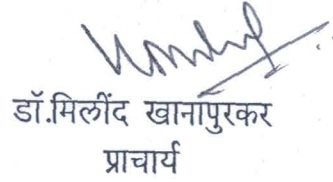 डॉ.मिलींद खानापुरकर
प्राचार्य